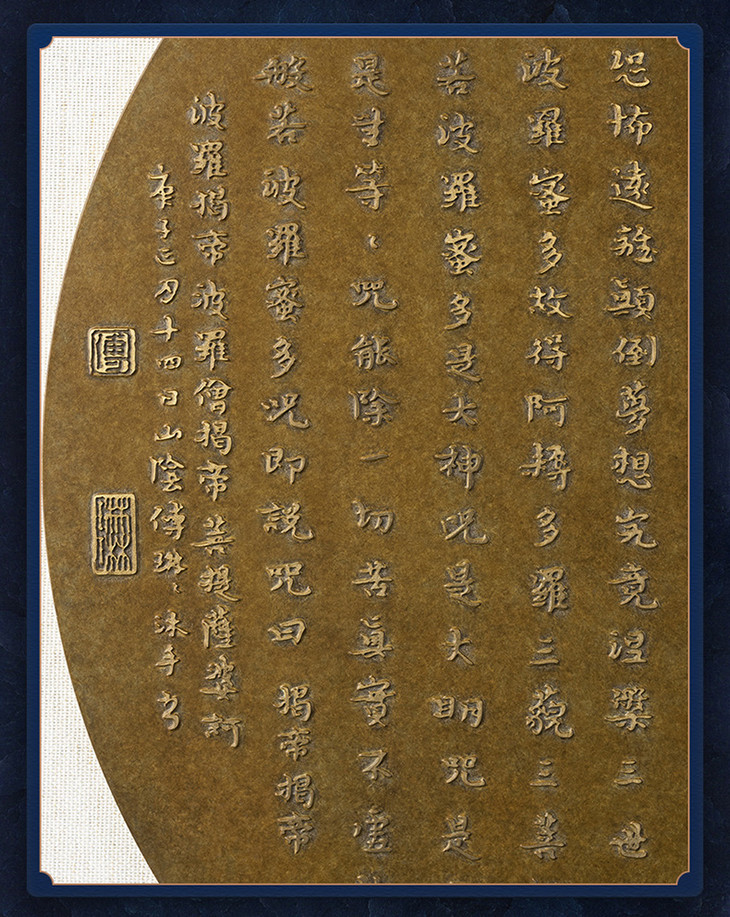 恐怖遠離顛倒夢想究竟涅槃三世
波羅蜜多故得阿耨多羅三藐三菩
若波羅蜜多是大神咒是大明咒是
是無等〻咒能除一切苦真實不虛
般若波羅蜜多咒即説咒曰 揭帝揭帝
波羅揭帝波羅僧揭帝菩提薩婆訶
庚子正月十四日山陰傅琳〻沐手書
傅